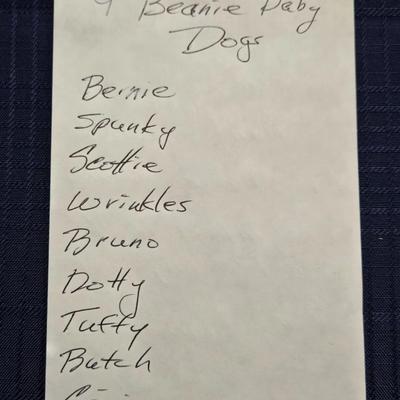 9 Beanie Baby
Dogs
Bernie
Spunky
Scottie
Wrinkles
Bruno
Dotty
Tuffy
Butch